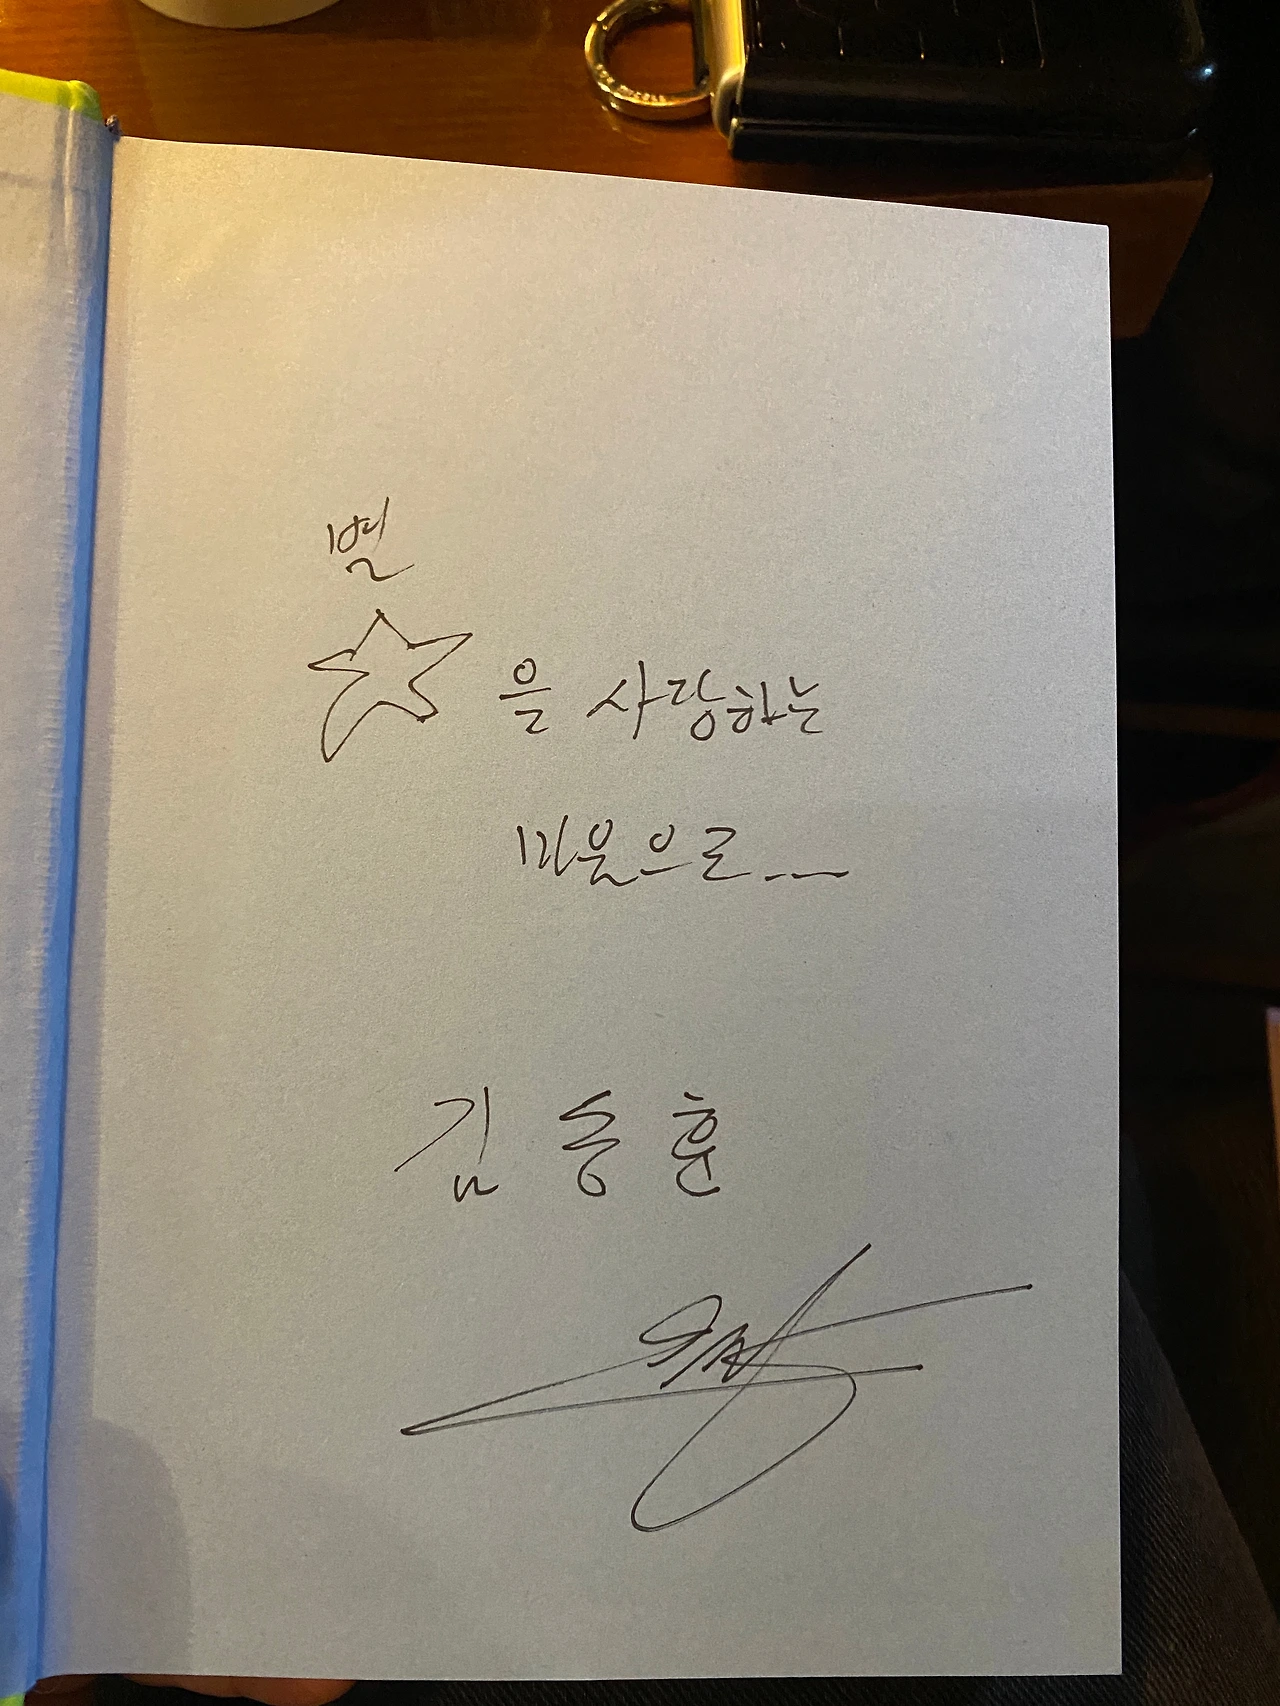 별
☆을 사랑하는
마음으로...
김동훈